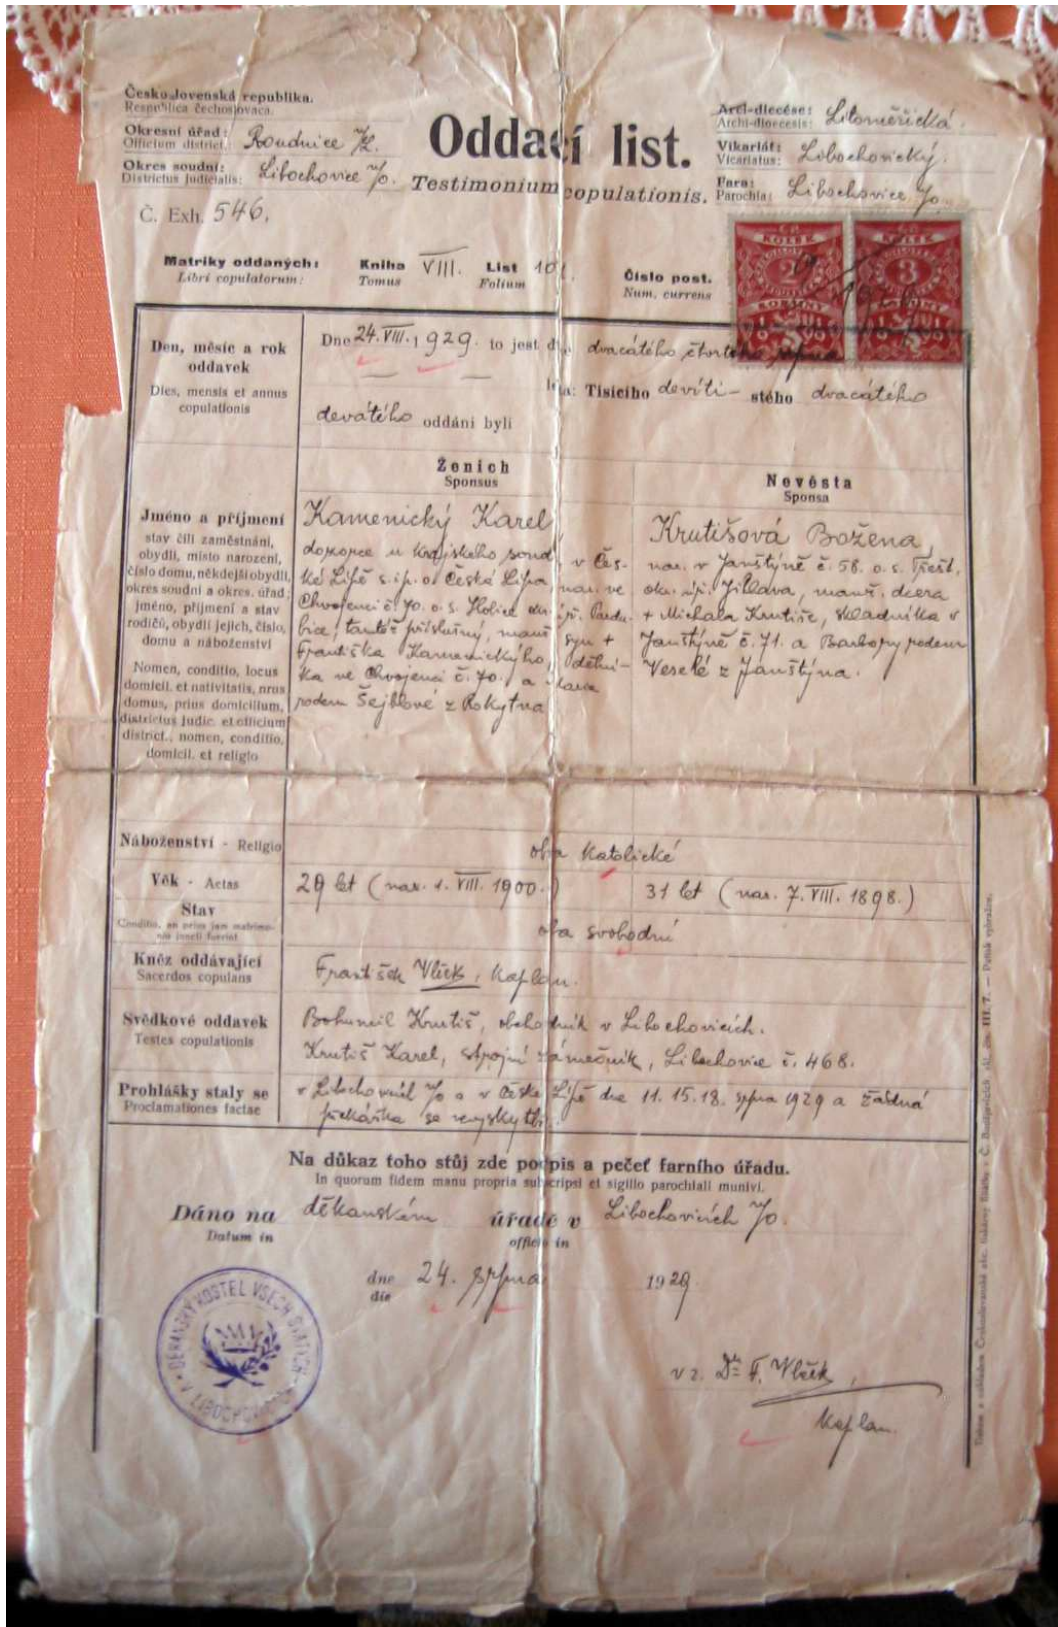 Československá republika.
Respublica čechoslovaca.
Okresní úřad: Roudnice n/L.
Officium district.
Okres soudní: Libochovice n/O.
Districtus judicialis:
Č. Exh. 546.
Oddací list.
Testimonium copulationis.
Arci-diecése: Litoměřická.
Archi-dioecesis:
Vikariát: Libochovický.
Vicariatus:
Fara: Libochovice n/O
Parochia:
KOLEK KOLEK
2 3
KORUNY KORUNY
1919 1919
Matriky oddaných: Kniha VIII. List 101. Číslo post.
Libri copulatorum: Tomus Folium Num. currens
Den, měsíc a rok
oddavek
Dies, mensis et annus
copulationis
Dne 24. VIII. 1929. to jest dne dvacátého čtvrtého srpna
léta: Tisícího devíti- stého dvacátého
devátého oddáni byli
Ženich
Sponsus
Nevěsta
Sponsa
Jméno a příjmení
stav čili zaměstnání,
obydlí, místo narození,
číslo domu, někdejší obydlí,
okres soudní a okres. úřad;
jméno, příjmení a stav
rodičů, obydlí jejich, číslo,
domu a náboženství
Nomen, conditio, locus
domicil. et nativitatis, nrus
domus, prius domicilium,
districtus judic. et officium
district., nomen, conditio,
domicil. et religio
Kamenický Karel
dozorce u krajského soudu v Čes-
ké Lípě s. i p. o. Česká Lípa, nar. ve
Chvojenci č. 70. o. s. Holice ok. úř. Pardu-
bice, tamtéž příslušný, manž. syn +
Františka Kamenického, dělní-
ka ve Chvojenci č. 70. a
rodem Šejblové z Rokytna
Krutišová Božena,
nar. v Janštýně č. 58. o. s. Třešť.
ok. úř. Jihlava, manž. dcera
+ Michala Krutiše, skladníka v
Janštýně č. 71. a Barbory rodem
Veselé z Janštýna.
Náboženství - Religio oba katolické
Věk - Aetas 29 let (nar. 1. VIII. 1900.) 31 let (nar. 7. VIII. 1898.)
Stav oba svobodní
Conditio, an prius jam matrimo-
nio juncti fuerint
Kněz oddávající František Vlček, kaplan.
Sacerdos copulans
Svědkové oddavek Bohumil Krutiš, obchodník v Libochovicích.
Testes copulationis Krutiš Karel, strojní zámečník, Libochovice č. 468.
Prohlášky staly se v Libochovicích n/O a v České Lípě dne 11. 15. 18. srpna 1929 a žádná
Proclamationes factae překážka se nevyskytla.
Na důkaz toho stůj zde podpis a pečeť farního úřadu.
In quorum fidem manu propria subscripsi et sigillo parochiali munivi.
Dáno na děkanském úřadě v Libochovicích n/O.
Datum in officio in
dne 24. srpna 1929.
die
DĚKANSKÝ KOSTEL VŠECH SVATÝCH V LIBOCHOVICÍCH
v z. Dr F. Vlček,
kaplan.